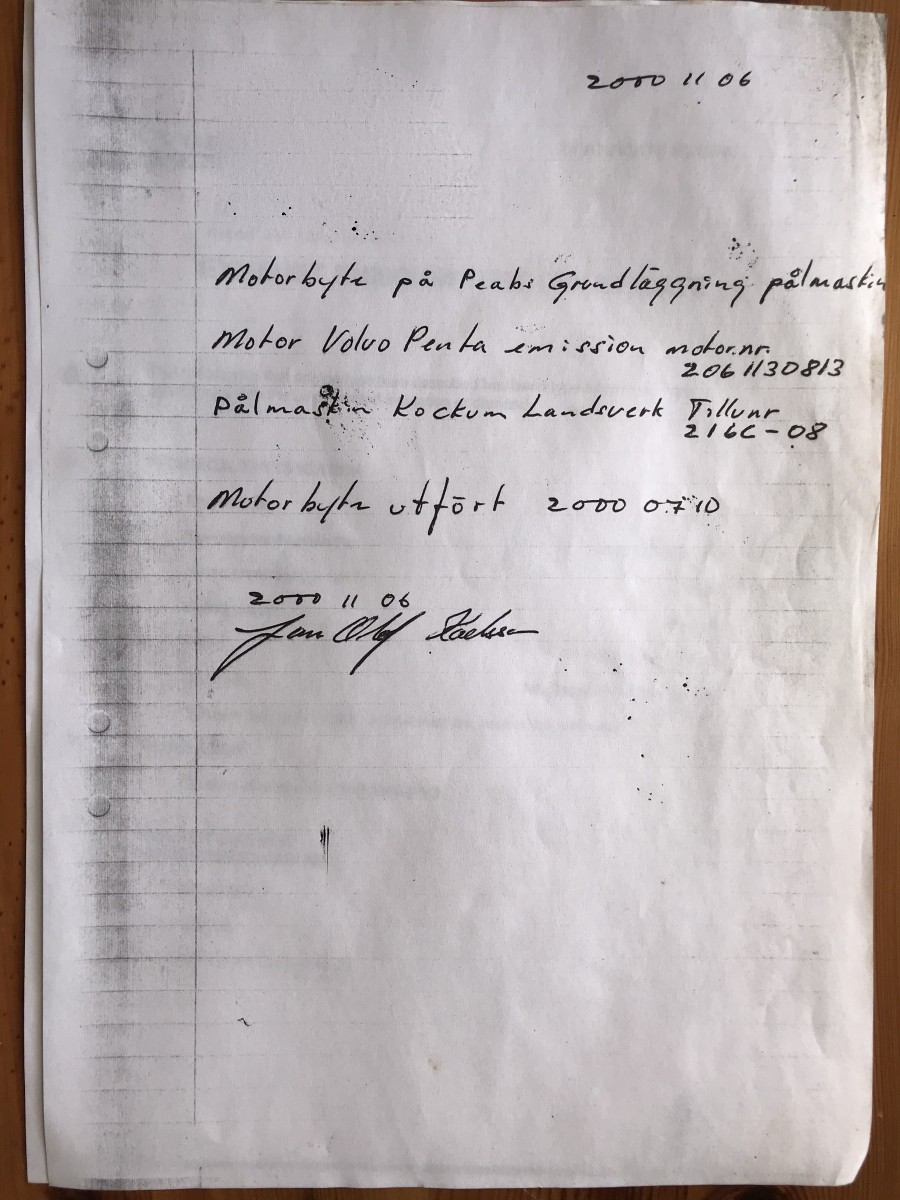 2000 11 06
Motorbyte på Peabs Grundläggning pålmaskin
Motor Volvo Penta emission motor.nr.
2061130813
Pålmaskin Kockum Landsverk Tillv nr
216C-08
Motorbyte utfört 2000 07 10
2000 11 06
Jan Olof Karlsson